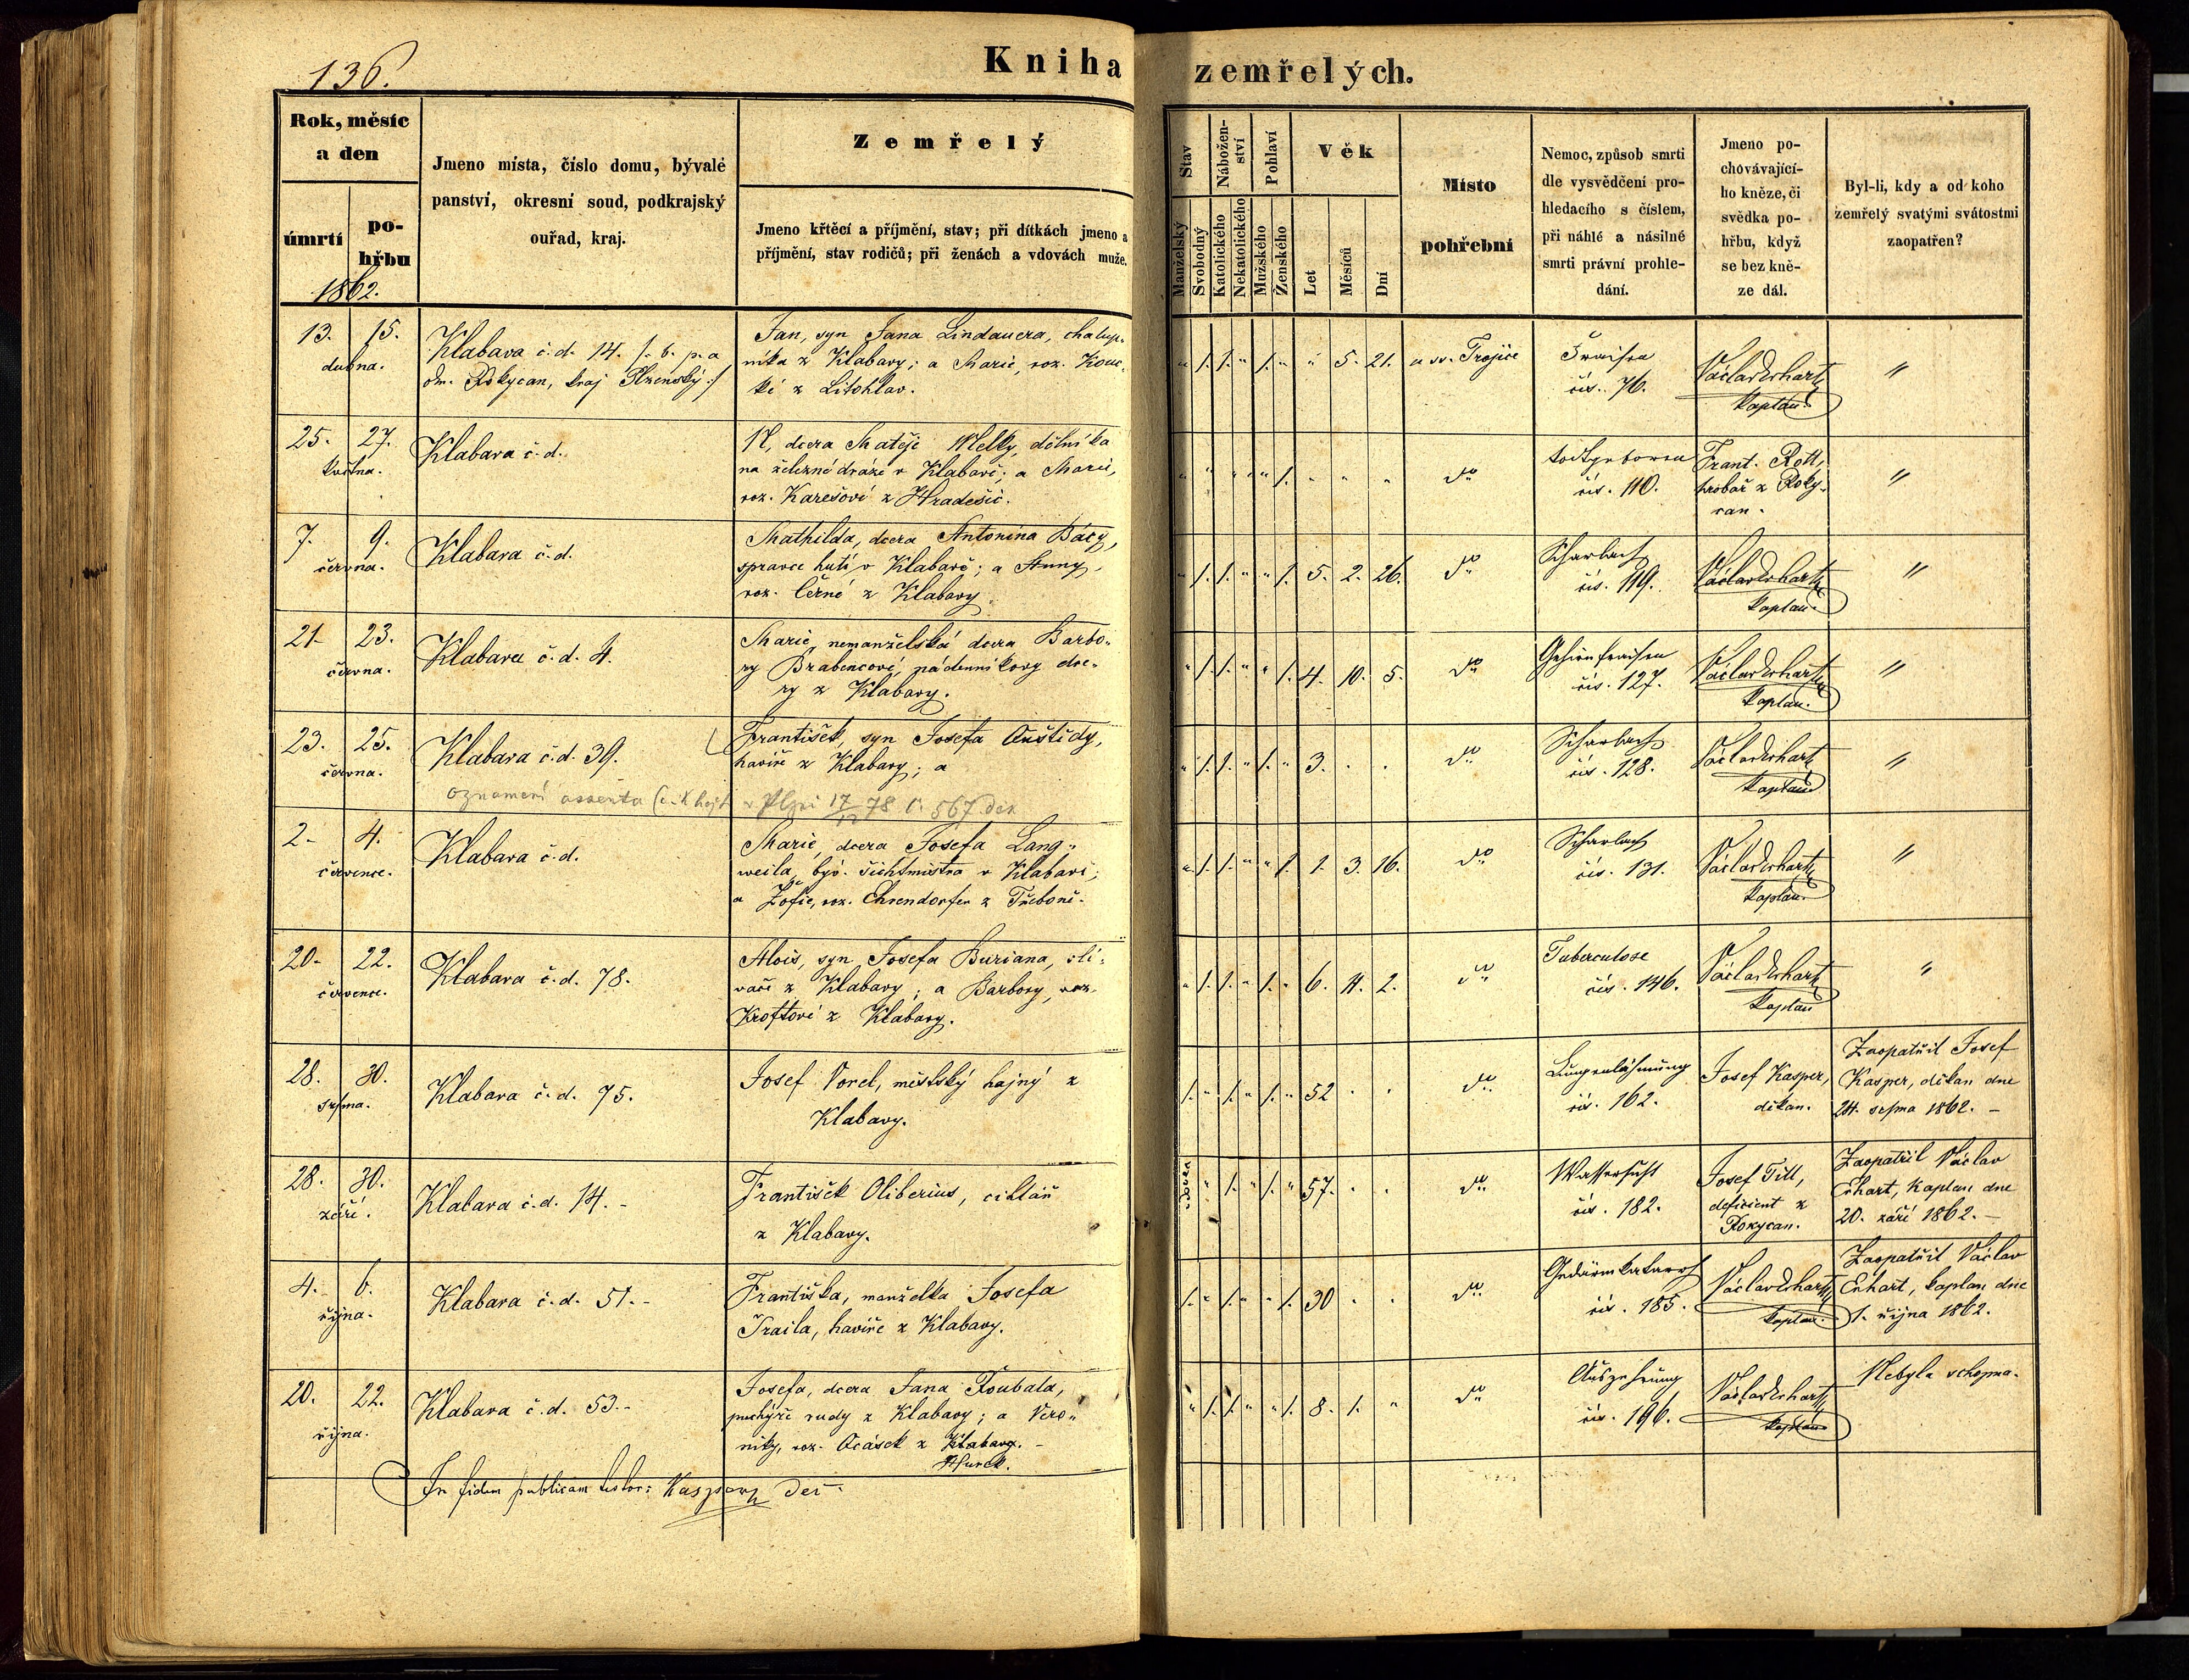 136.
Kniha zemřelých.
Rok, měsíc
a den
úmrtí
po-
hřbu
1862.
Jmeno místa, číslo domu, bývalé
panství, okresní soud, podkrajský
ouřad, kraj.
Zemřelý
Jmeno křtěcí a příjmění, stav; při dítkách jmeno a
příjmění, stav rodičů; při ženách a vdovách muže.
Stav
Manželský
Svobodný
Nábožen-
ství
Katolického
Nekatolického
Pohlaví
Mužského
Ženského
Věk
Let
Měsíců
Dní
Místo
pohřební
Nemoc, způsob smrti
dle vysvědčení pro-
hledacího s číslem,
při náhlé a násilné
smrti právní prohle-
dání.
Jmeno po-
chovávající-
ho kněze, či
svědka po-
hřbu, když
se bez kně-
ze dál.
Byl-li, kdy a od koho
zemřelý svatými svátostmi
zaopatřen?
13. 15.
dubna.
Klabava č.d. 14. /: b. p. a
okr. Rokycan, kraj Plzenský :/
Jan, syn Jana Lindauera, chalup-
níka z Klabavy; a Marie, roz. Kouc-
ké z Litohlav.
" 1. 1. " 1. " " 5. 21. u sv. Trojice
Fraisen
čís. 76.
Václav Erhart
kaplan.
"
25. 27.
května.
Klabava č.d.
N, dcera Matěje Melky, dělníka
na železné dráze v Klabavě; a Marie,
roz. Karešové z Hradešic.
" " " " " 1. " " " dto
todtgeboren
čís. 110.
Frant. Rott,
hrobař z Roky-
can.
"
7. 9.
června.
Klabava č.d.
Mathilda, dcera Antonína Bácy,
správce hutí v Klabavě; a Anny,
roz. Černé z Klabavy.
" 1. 1. " " 1. 5. 2. 26. dto
Scharlach
čís. 119.
Václav Erhart
kaplan.
"
21. 23.
června.
Klabava č.d. 4.
Marie, nemanželská dcera Barbo-
ry Brabencové, nádenníkovy dce-
ry z Klabavy.
" 1. 1. " " 1. 4. 10. 5. dto
Gehirnfraisen
čís. 127.
Václav Erhart
kaplan.
"
23. 25.
června.
Klabava č.d. 39.
František, syn Josefa Auštidy,
havíře z Klabavy; a
" 1. 1. " 1. " 3. . . dto
Scharlach
čís. 128.
Václav Erhart
kaplan
"
oznamení assenta v Plzni 17/12 78 č. 567
2. 4.
července.
Klabava č.d.
Marie, dcera Josefa Lang-
weila, býv. šichtmistra v Klabavě;
a Žofie, roz. Ehrendorfer z Třeboně.
" 1. 1. " " 1. 1. 3. 16. dto
Scharlach
čís. 131.
Václav Erhart
kaplan.
"
20. 22.
července.
Klabava č.d. 78.
Alois, syn Josefa Buriana, slí-
vače z Klabavy; a Barbory, roz.
Kroftové z Klabavy.
" 1. 1. " 1. " 6. 11. 2. dto
Tuberculose
čís. 146.
Václav Erhart
kaplan
"
28. 30.
srpna.
Klabava č.d. 75.
Josef Vorel, městský hajný z
Klabavy.
1. " 1. " 1. " 52 . . dto
Lungenlähmung
čís. 162.
Josef Kasper,
děkan.
Zaopatřil Josef
Kasper, děkan dne
24. srpna 1862. –
28. 30.
září.
Klabava č.d. 14. –
František Oliberius, cihlář
z Klabavy.
vdovec " 1. " 1. " 57. . . dto
Wassersucht
čís. 182.
Josef Titl,
deficient z
Rokycan.
Zaopatřil Václav
Erhart, kaplan dne
20. září 1862. –
4. 6.
října.
Klabava č.d. 51. –
Františka, manželka Josefa
Traila, havíře z Klabavy.
1. " 1. " " 1. 30 . . dto
Gedärmkatarrh
čís. 185.
Václav Erhart
kaplan.
Zaopatřil Václav
Erhart, kaplan dne
1. října 1862.
20. 22.
října.
Klabava č.d. 53. –
Josefa, dcera Jana Roubala,
puchýře rudy z Klabavy; a Vero-
niky, roz. Ocásek z Klabavy. –
Hurek.
" 1. 1. " " 1. 8. 1. " dto
Auszehrung
čís. 196.
Václav Erhart
kaplan
Nebyla schopna.
In fidem publicam testor: Kaspar Děk.